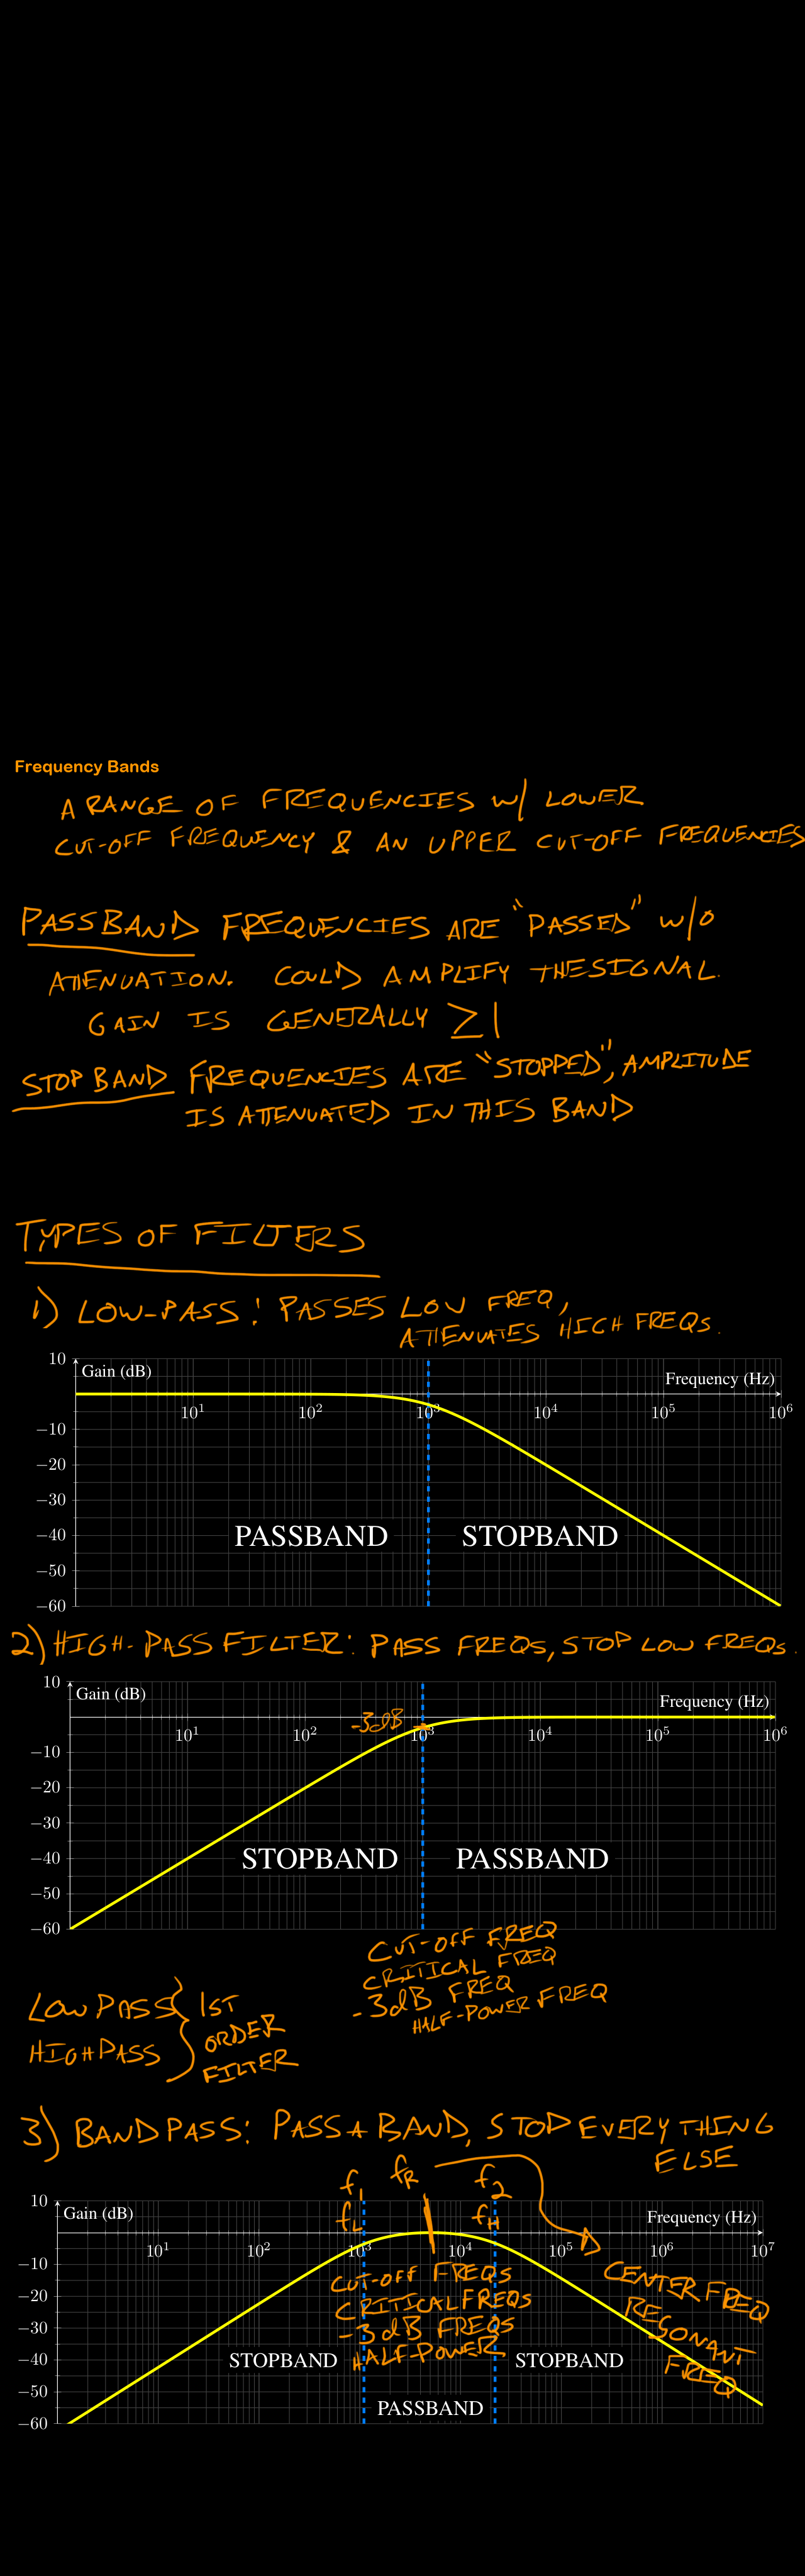 Frequency Bands
A RANGE OF FREQUENCIES w/ LOWER
CUT-OFF FREQUENCY & AN UPPER CUT-OFF FREQUENCIES
PASSBAND FREQUENCIES ARE "PASSED" w/o
ATTENUATION. COULD AMPLIFY THE SIGNAL.
GAIN IS GENERALLY ≥ 1
STOP BAND FREQUENCIES ARE "STOPPED", AMPLITUDE
IS ATTENUATED IN THIS BAND
TYPES OF FILTERS
1) LOW-PASS: PASSES LOW FREQ,
ATTENUATES HIGH FREQS.
10
Gain (dB)
Frequency (Hz)
10¹ 10² 10³ 10⁴ 10⁵ 10⁶
−10
−20
−30
−40
PASSBAND STOPBAND
−50
−60
2) HIGH-PASS FILTER: PASS FREQS, STOP LOW FREQS.
10
Gain (dB)
Frequency (Hz)
-3dB
10¹ 10² 10³ 10⁴ 10⁵ 10⁶
−10
−20
−30
−40
STOPBAND PASSBAND
−50
−60
CUT-OFF FREQ
CRITICAL FREQ
-3dB FREQ
HALF-POWER FREQ
LOW PASS } 1ST
HIGH PASS } ORDER
FILTER
3) BAND PASS: PASS A BAND, STOP EVERYTHING
ELSE
f₁ fR f₂
fL fH
10
Gain (dB)
Frequency (Hz)
10¹ 10² 10³ 10⁴ 10⁵ 10⁶ 10⁷
−10
−20
−30
−40
−50
−60
CUT-OFF FREQS
CRITICAL FREQS
-3dB FREQS
HALF-POWER
CENTER FREQ
RESONANT
FREQ
STOPBAND STOPBAND
PASSBAND